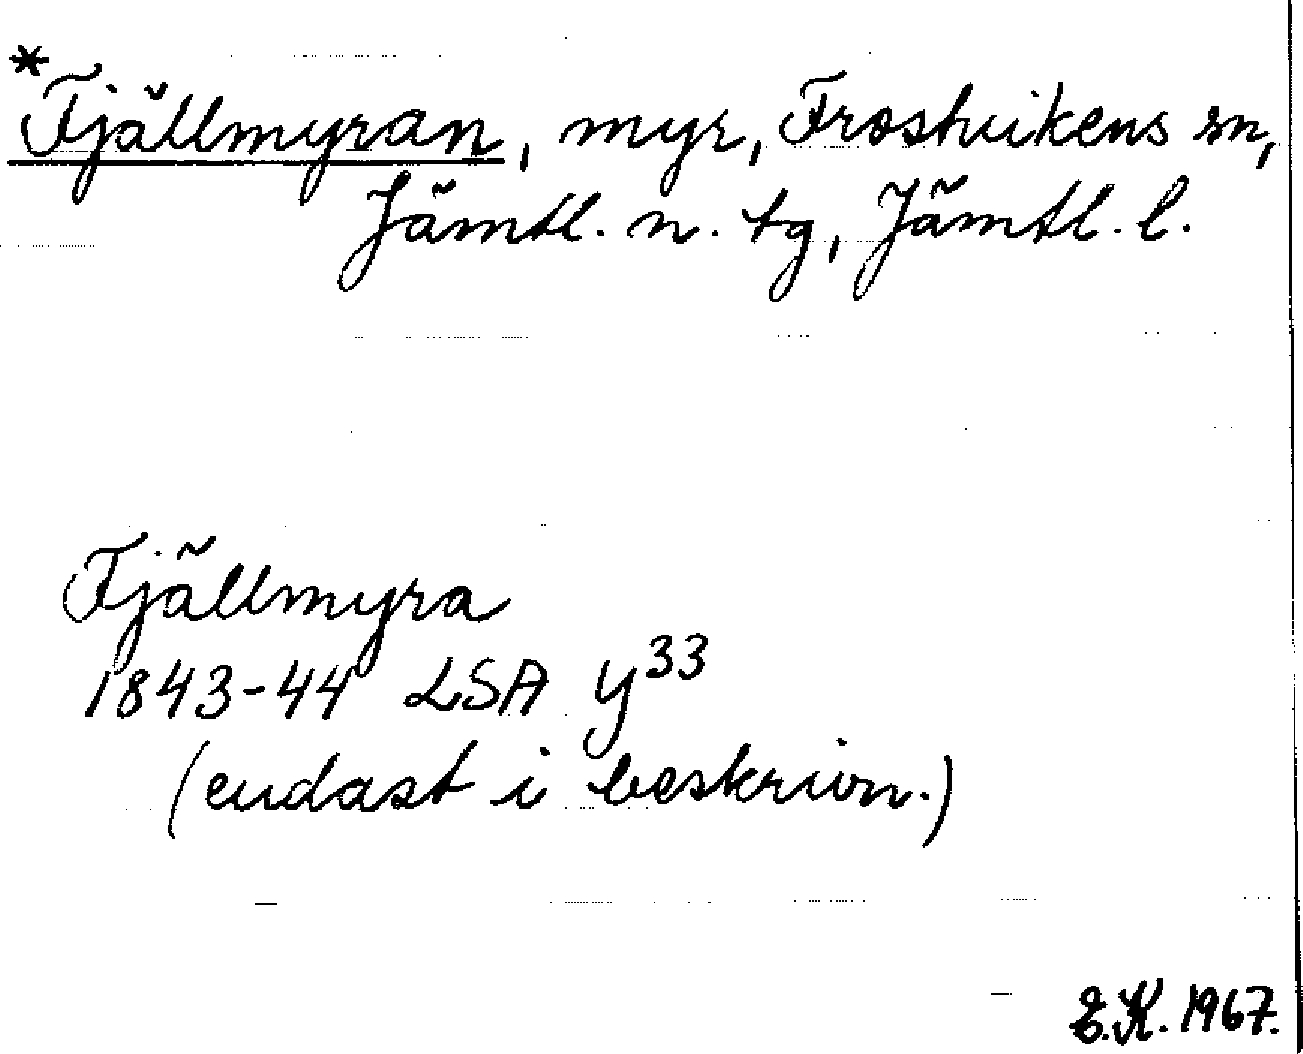 *Fjällmyran, myr, Frostvikens sn,
Jämtl. n. tg, Jämtl. l.
Fjällmyra
1843-44 LSA Y³³
(endast i beskrivn.)
E.K. 1967.